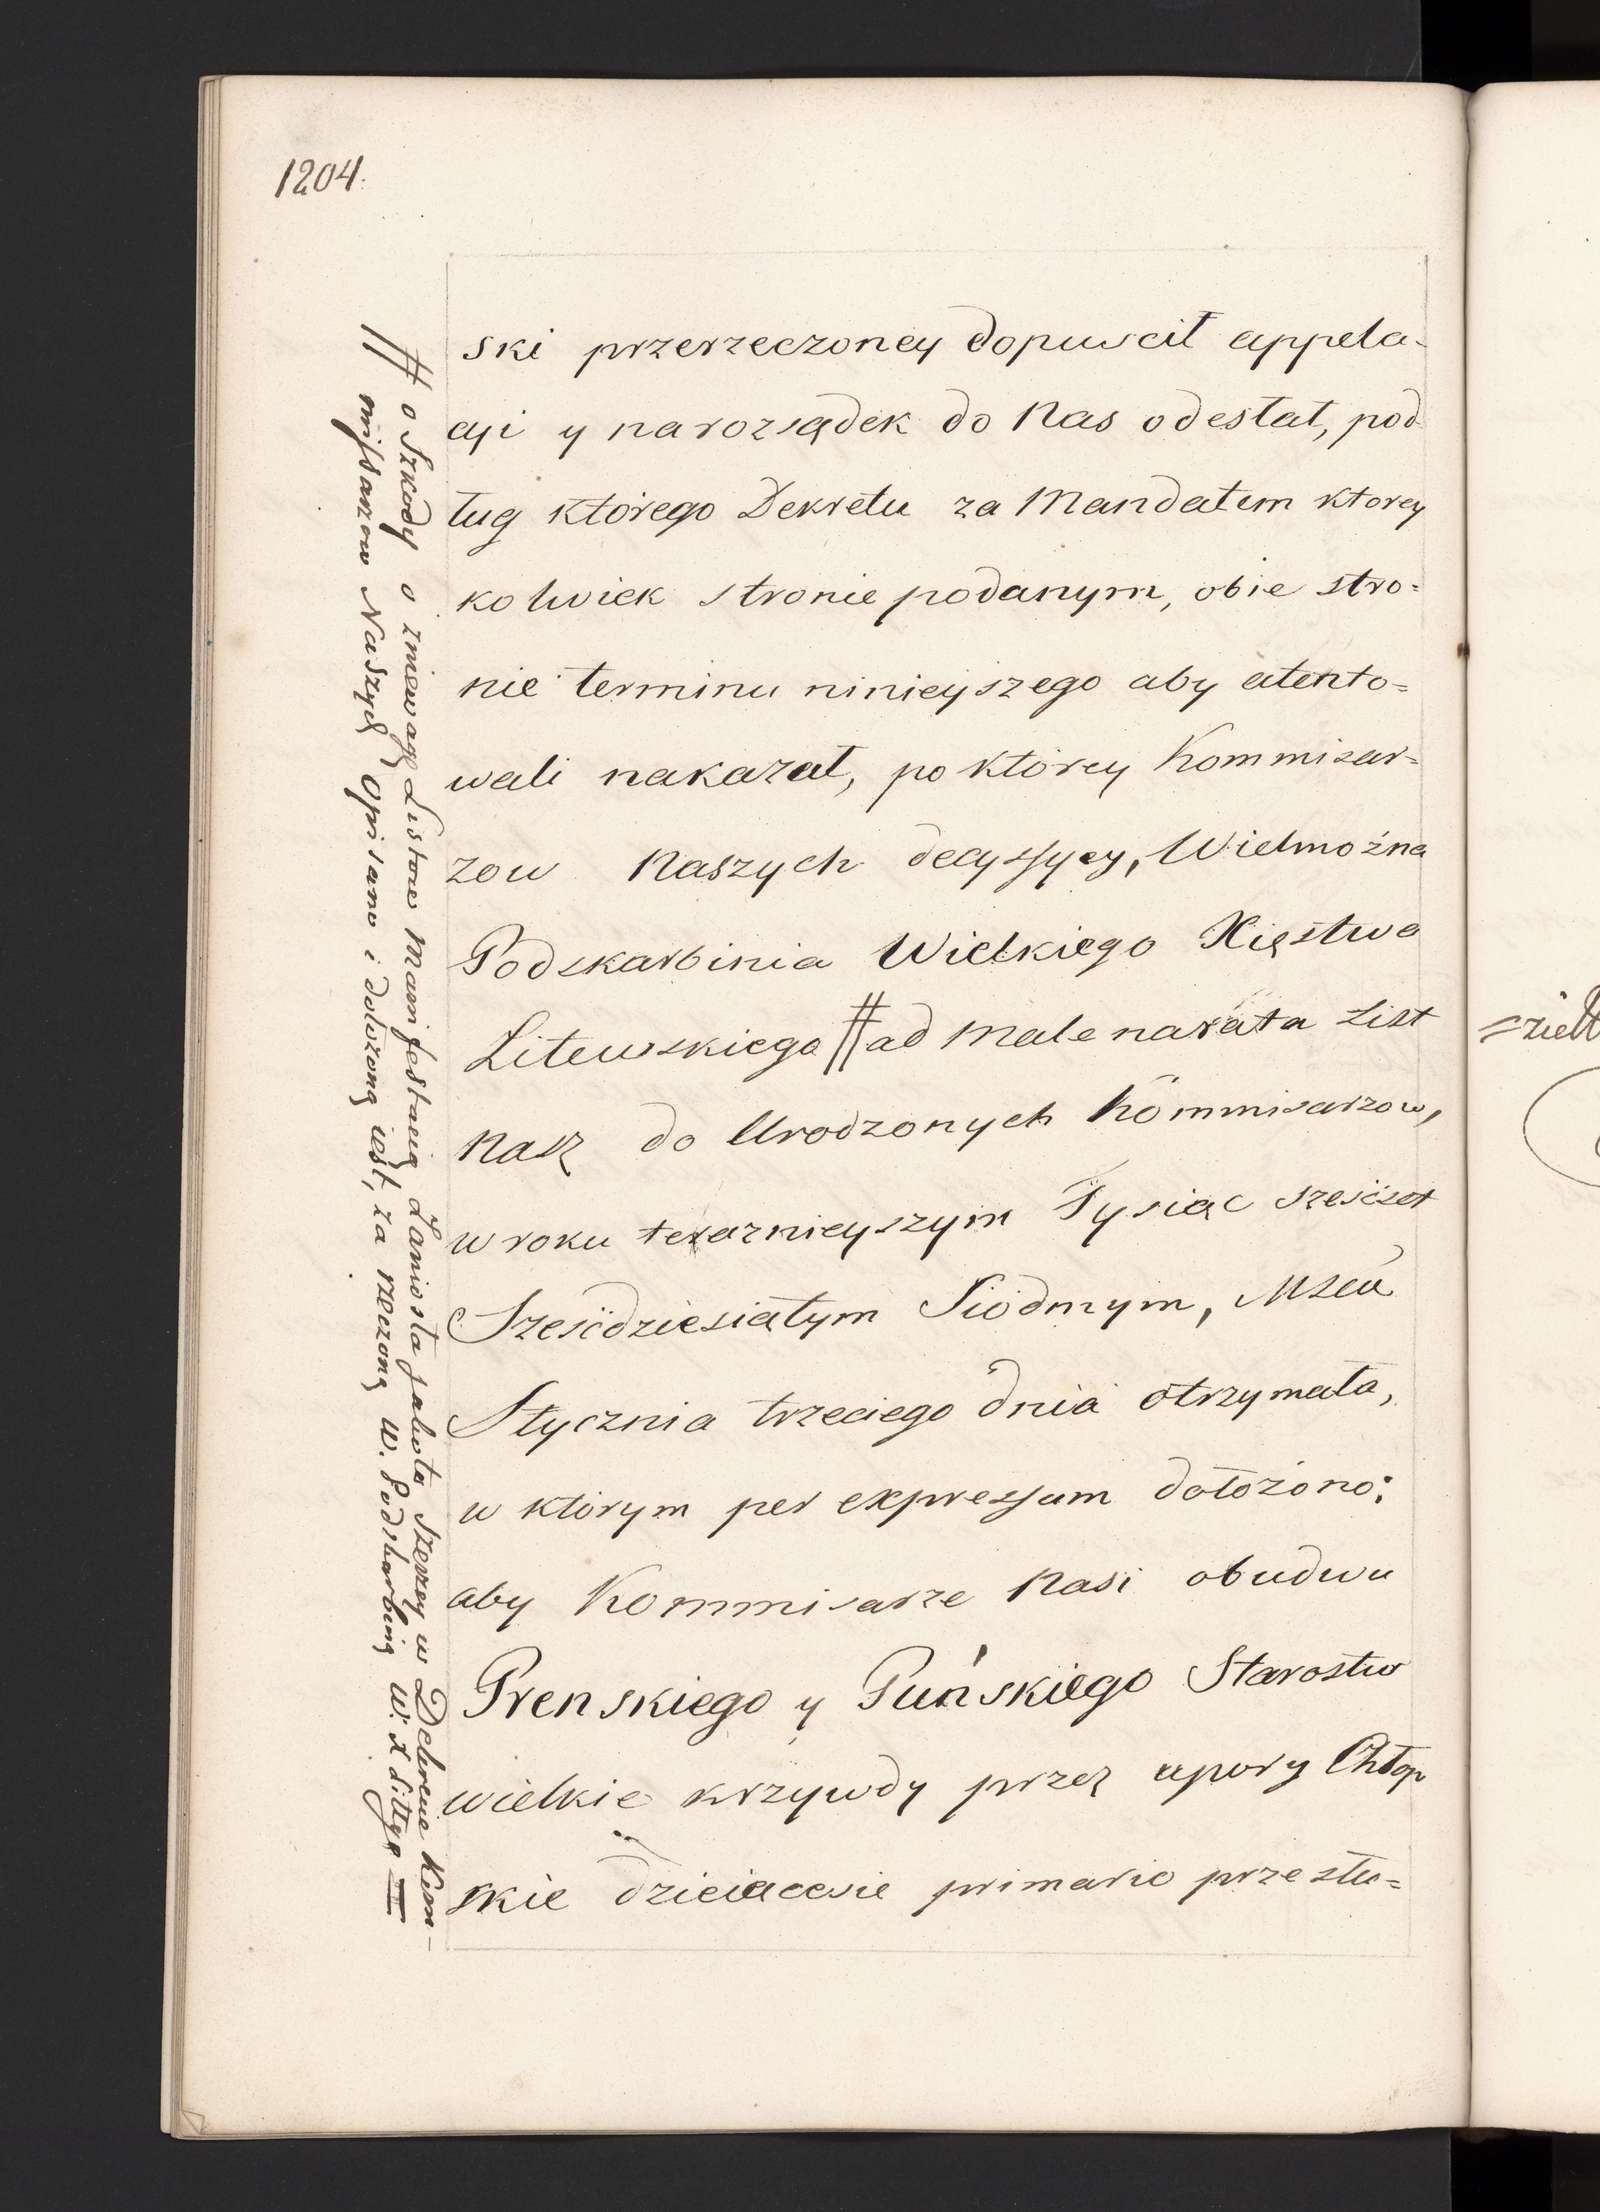 1204.
ski przerzeczoney dopuscił appela-
cyi y na rozsądek do Nas odesłał, pod-
ług ktorego Dekretu za Mandatem ktorey
kolwiek stronie podanym, obie stro=
nie terminu ninieyszego aby atento=
wali nakazał, po ktorey Kommisar=
zow Naszych decyssyey, Wielmożna
Podskarbinia Wielkiego Xięstwa
Litewskiego # ad male narata List
Nasz do Urodzonych Kommisarzow,
w roku teraznieyszym Tysiąc szesćset
Szesćdziesiątym Siodmym, Msca
Stycznia trzeciego dnia otrzymała,
w ktorym per expressum dołożono;
aby Kommisarze Nasi obudwu
Prenskiego y Puńskiego Starostw
wielkie krzywdy przez upory Chłop
skie dzieiącesie primario przesłu=
# o Szkody o zniewagę Listow Manifestacią Zaniosła jako to Szerzey w Dekrecie Kom-
missarzow Naszych Opisano i dołożoną iest, za rzeczoną W. Podskarbinią W. X. Littge
=zielt